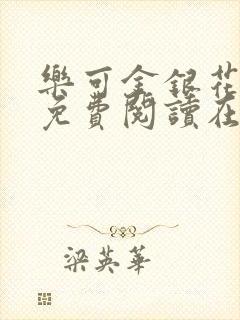 樂可金銀花
免費閱讀在
梁英華